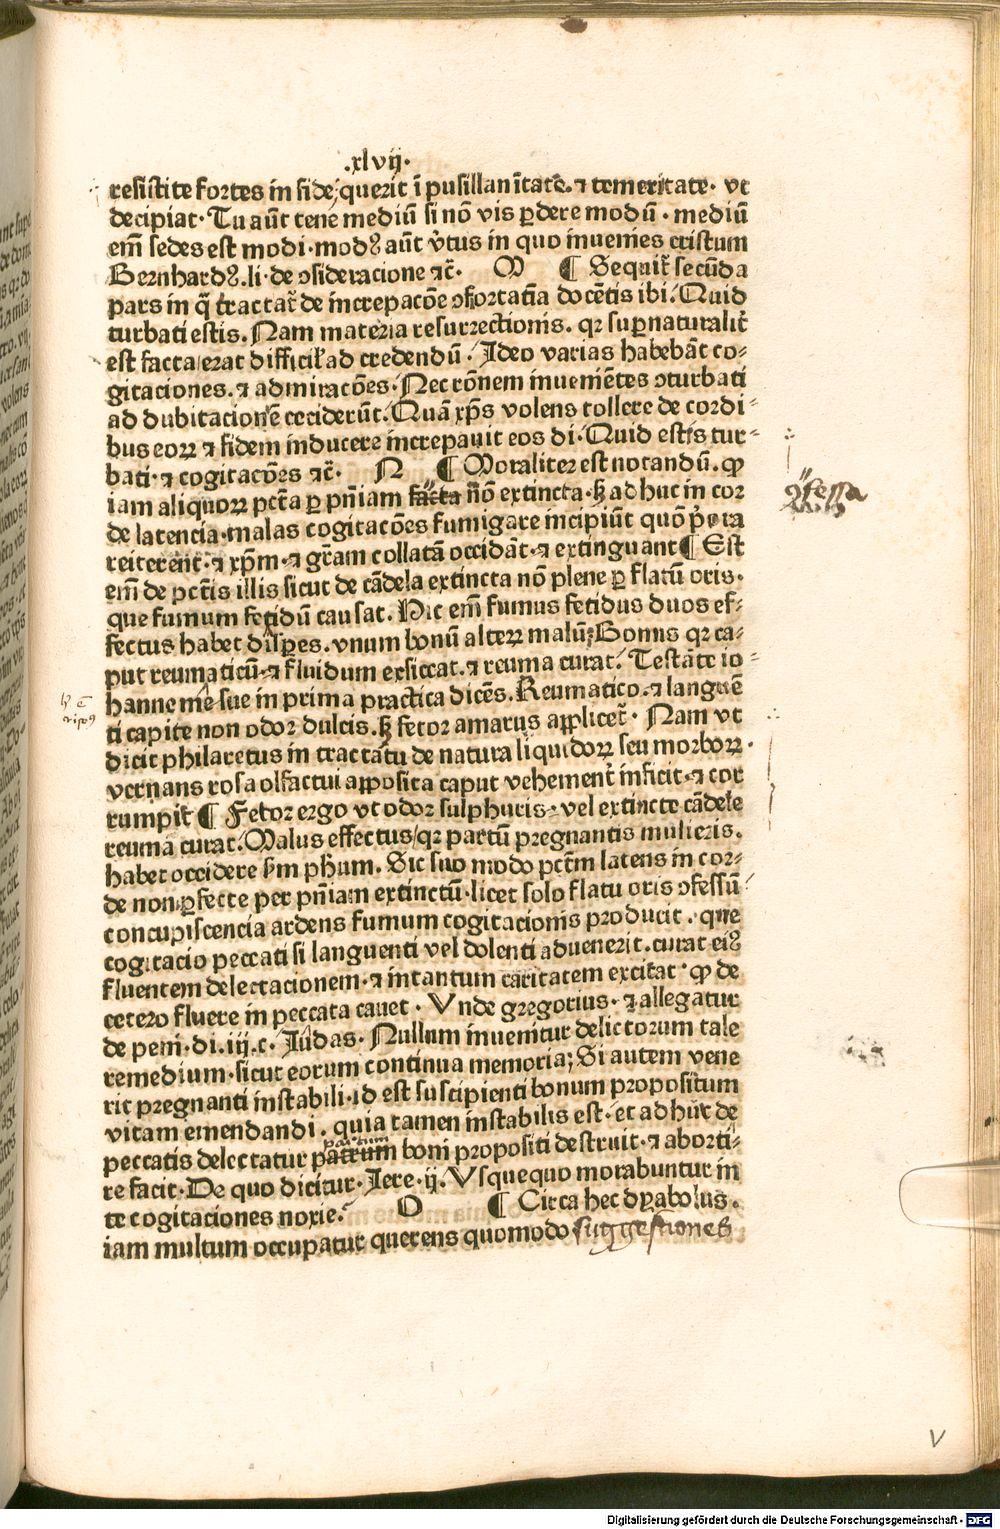 .xlvij.
resistite fortes in fide, querit ī pusillanītate. ⁊ temeritate. vt
decipiat. Tu aūt tene mediū si nō vis ꝑdere modū. mediū
em̄ sedes est modi. modꝰ aūt v̓tus in quo inuenies cristum
Bernhardꝰ. li. de ꝯsideracione ⁊c̄. M ¶ Sequit̄ secūda
pars in q̄ tractat̄ de increpacōe ꝯfortatīa docētis ibi. Quid
turbati estis. Nam materia resurrectionis. qꝛ suꝑnaturalit̄
est facta erat difficił ad credendū. Ideo varias habebāt co⸗
gitaciones. ⁊ admiracōes. Nec rōnem inueniētes ꝯturbati
ad dubitacionē ceciderūt. Quā xp̄s volens tollere de cordi⸗
bus eoꝝ ⁊ fidem inducere increpauit eos di. Quid estis tur⸗
bati. ⁊ cogitacōes ⁊c̄. N ¶ Moraliter est notandū. ꝙ
iam aliquoꝝ pctā ꝑ pn̄iam facta nō extincta. sꝫ adhuc in cor
de latencia. malas cogitacōes fumigare incipiūt quō p̄ora
reiterent̄. ⁊ xp̄m. ⁊ gr̄am collatā occidāt. ⁊ extinguant ¶ Est
em̄ de pctīs illis sicut de cādela extincta nō plene ꝑ flatū oris.
que fumum fetidū causat. Hic em̄ fumus fetidus duos ef⸗
fectus habet disꝑes. vnum bonū alteꝝ malū. Bonus qꝛ ca⸗
put reumaticū. ⁊ fluidum exsiccat. ⁊ reuma curat. Testāte io⸗
hanne mesue in prima practica dicēs. Reumatico. ⁊ languē
ti capite non odor dulcis. sꝫ fetor amarus apꝑlicet̄. Nam vt
dicit philaretus in tractatu de natura liquidoꝝ seu morboꝝ.
vernans rosa olfactui apꝑosita caput vehement̄ inficit. ⁊ cor
rumpit ¶ Fetor ergo vt odor sulphuris. vel extincte cādele
reumā curat. Malus effectus, qꝛ partū pregnantis mulieris.
habet occidere sm̄ phum. Sic suo modo pctm̄ latens in cor⸗
de non ꝑfecte per pn̄iam extinctū. licet solo flatu oris ꝯfessū
concupiscencia ardens fumum cogitacionis producit. que
cogitacio peccati si languenti vel dolenti aduenerit. curat eiꝰ
fluentem delectacionem. ⁊ intantum caritatem excitat. ꝙ de
cetero fluere in peccata cauet. Vnde gregorius. ⁊ allegatur
de peni. di. iij. c. Iudas. Nullum inuenitur delictorum tale
remedium. sicut eorum continua memoria; Si autem vene
rit pregnanti instabili. id est suscipienti bonum propositum
vitam emendandi. quia tamen instabilis est. et adhuc de
peccatis delectatur patrum boni propositi destruit. ⁊ aborti⸗
partum
re facit. De quo dicitur. Iere. ij. Vsquequo morabuntur in
te cogitaciones noxie. O ¶ Circa hec dyabolus.
iam multum occupatur querens quomodo suggestiones
ꝯfessa
V
Digitalisierung gefördert durch die Deutsche Forschungsgemeinschaft - DFG